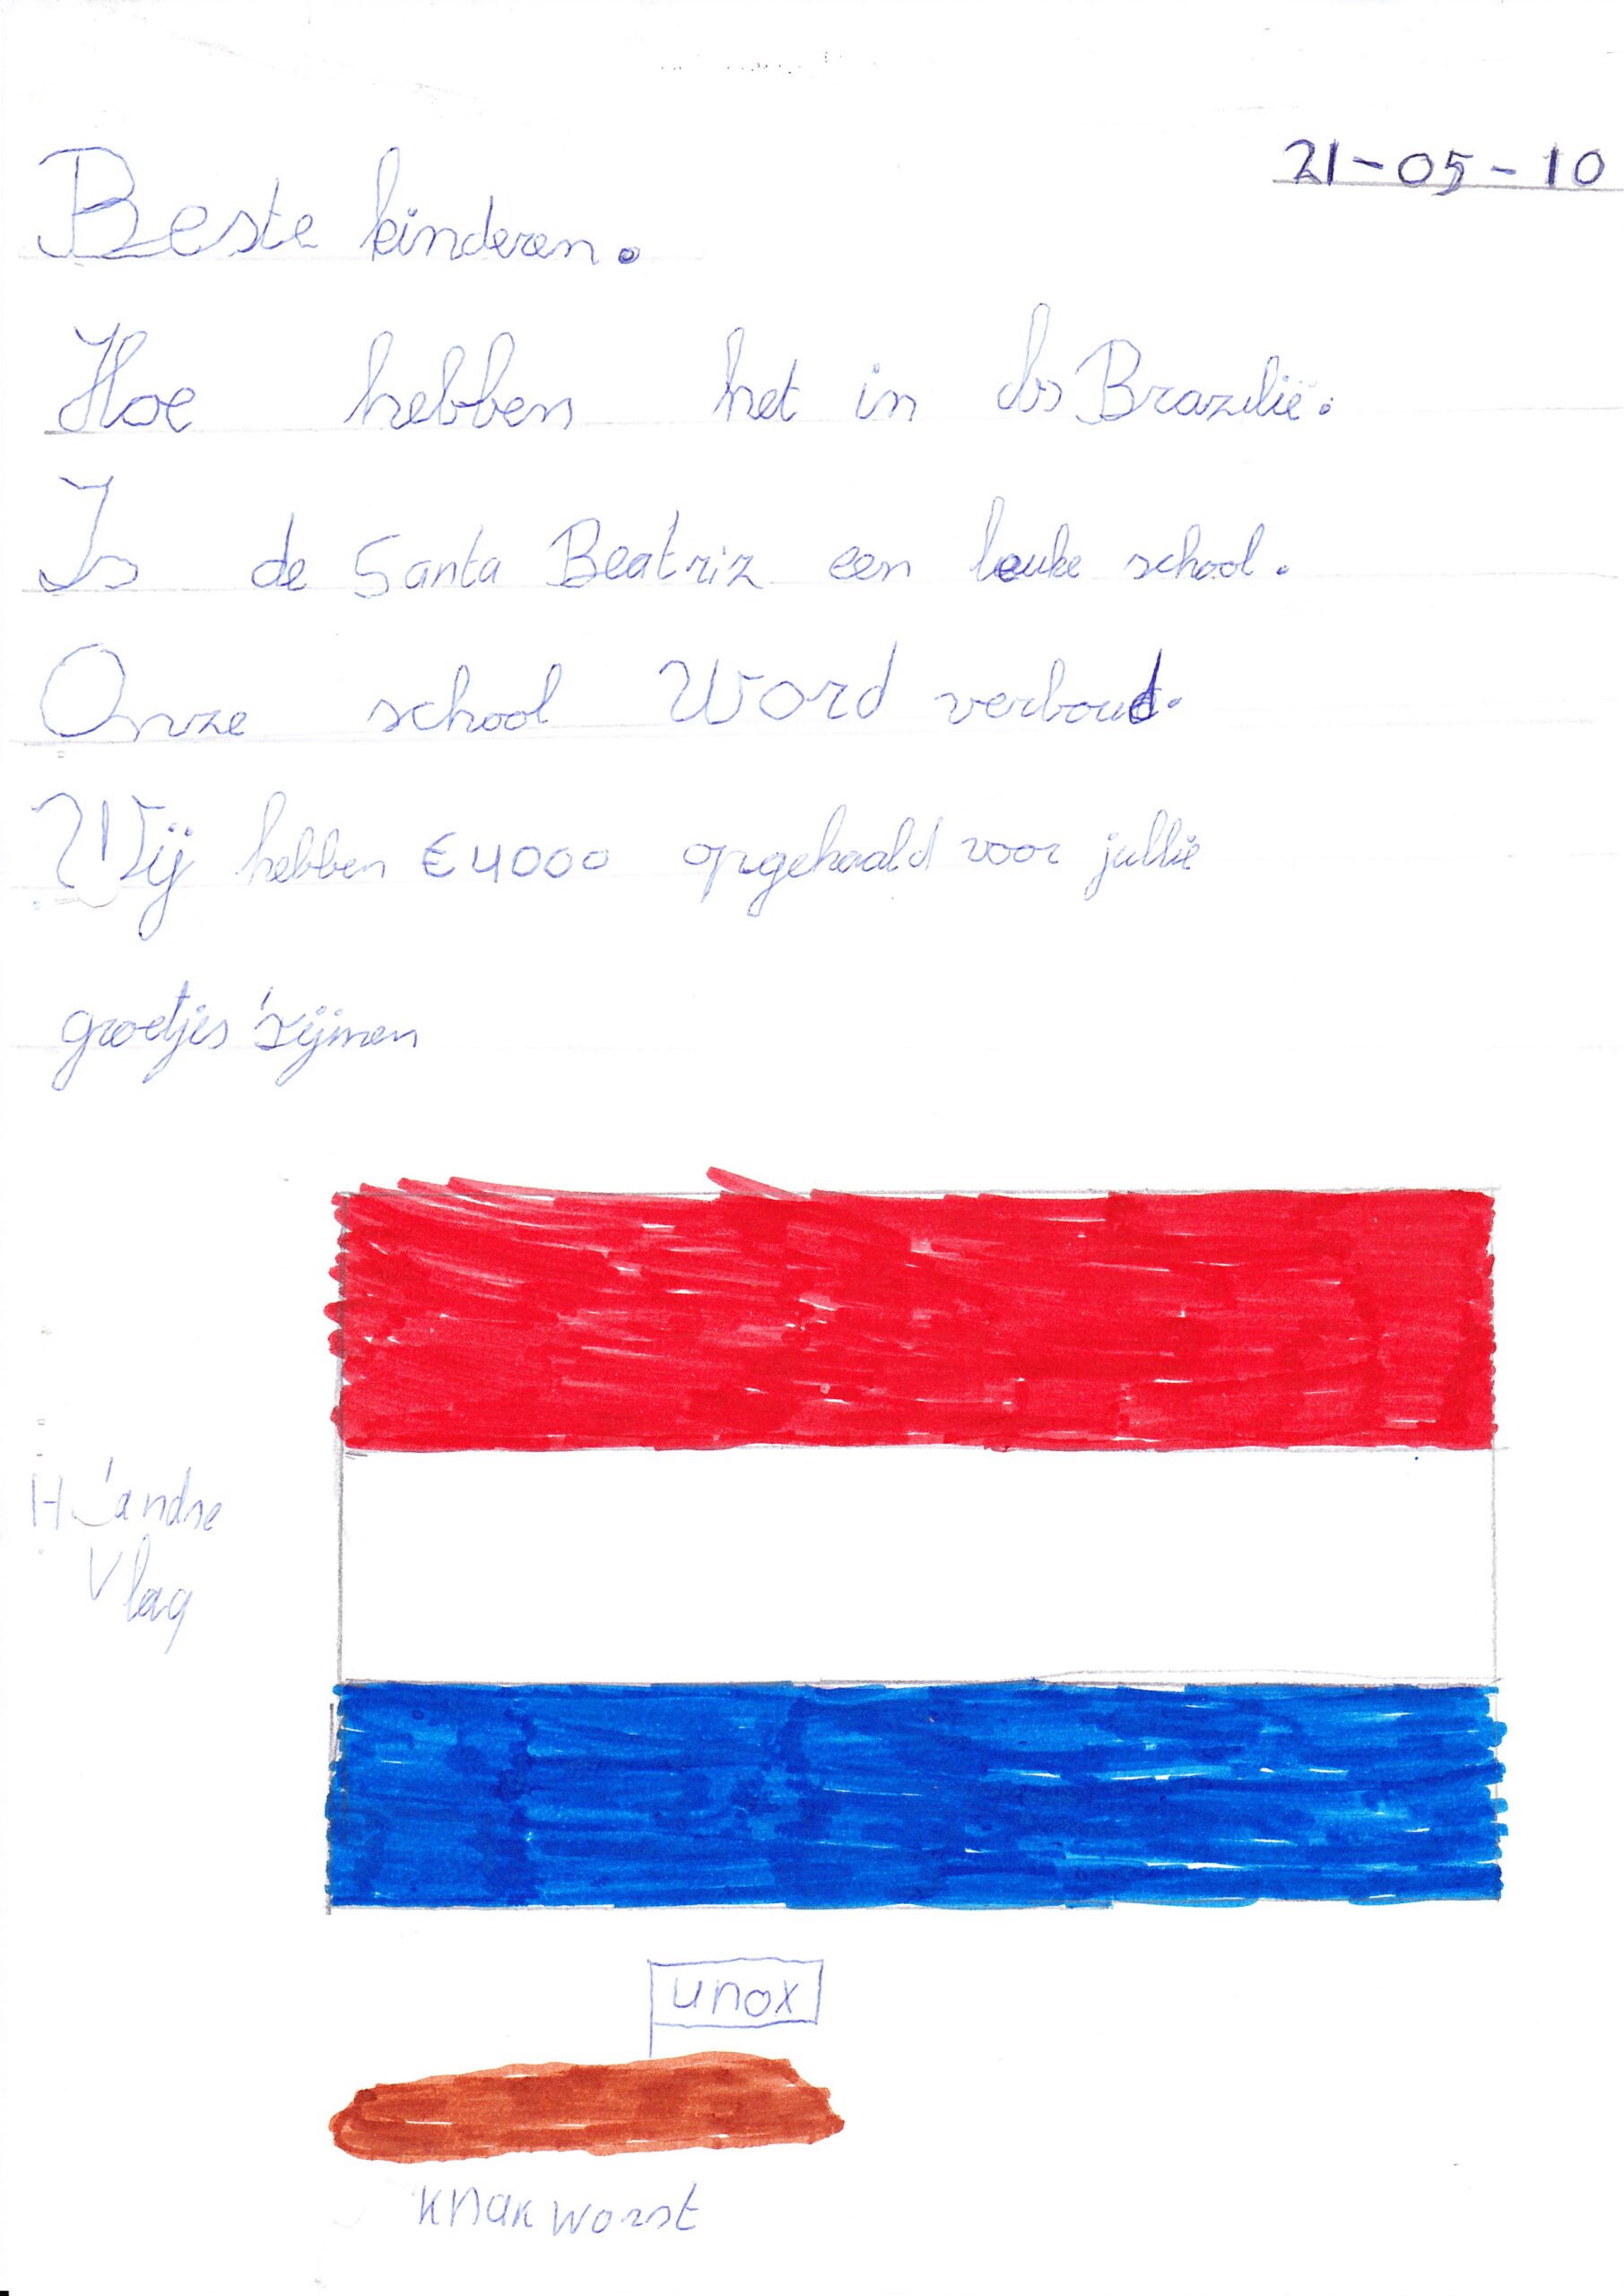 21-05-10
Beste kinderen.
Hoe hebben het in Brazilië.
Is de Santa Beatriz een leuke school.
Onze school word verboud.
Wij hebben €4000 opgehaald voor jullie
groetjes
Vlag
unox
knakworst